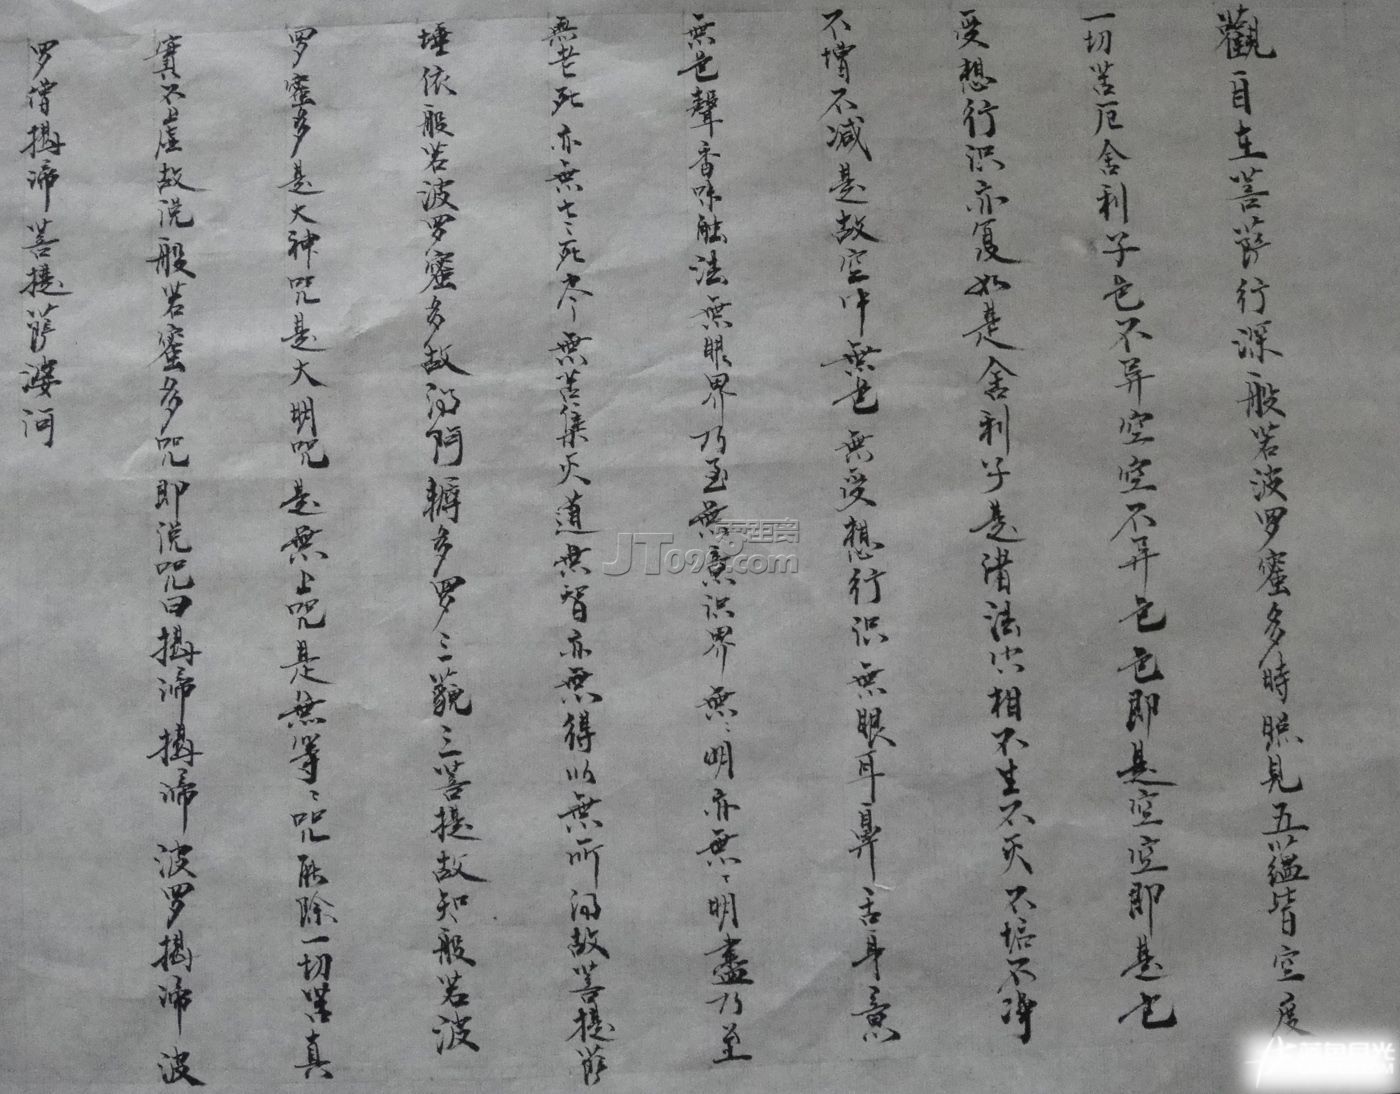 觀自在菩薩行深般若波罗蜜多時照見五蕴皆空度
一切苦厄舍利子色不异空空不异色色即是空空即是色
受想行识亦复如是舍利子是诸法空相不生不灭不垢不净
不增不减是故空中無色無受想行识無眼耳鼻舌身意
無色聲香味触法無眼界乃至無意识界無〻明亦無〻明盡乃至
無老死亦無老死尽無苦集灭道無智亦無得以無所得故菩提萨
埵依般若波罗蜜多故得阿耨多罗三藐三菩提故知般若波
罗蜜多是大神咒是大明咒是無上咒是無等〻咒能除一切苦真
實不虚故说般若蜜多咒即说咒曰揭谛揭谛波罗揭谛波
罗僧揭谛菩提萨婆诃
JT09.com